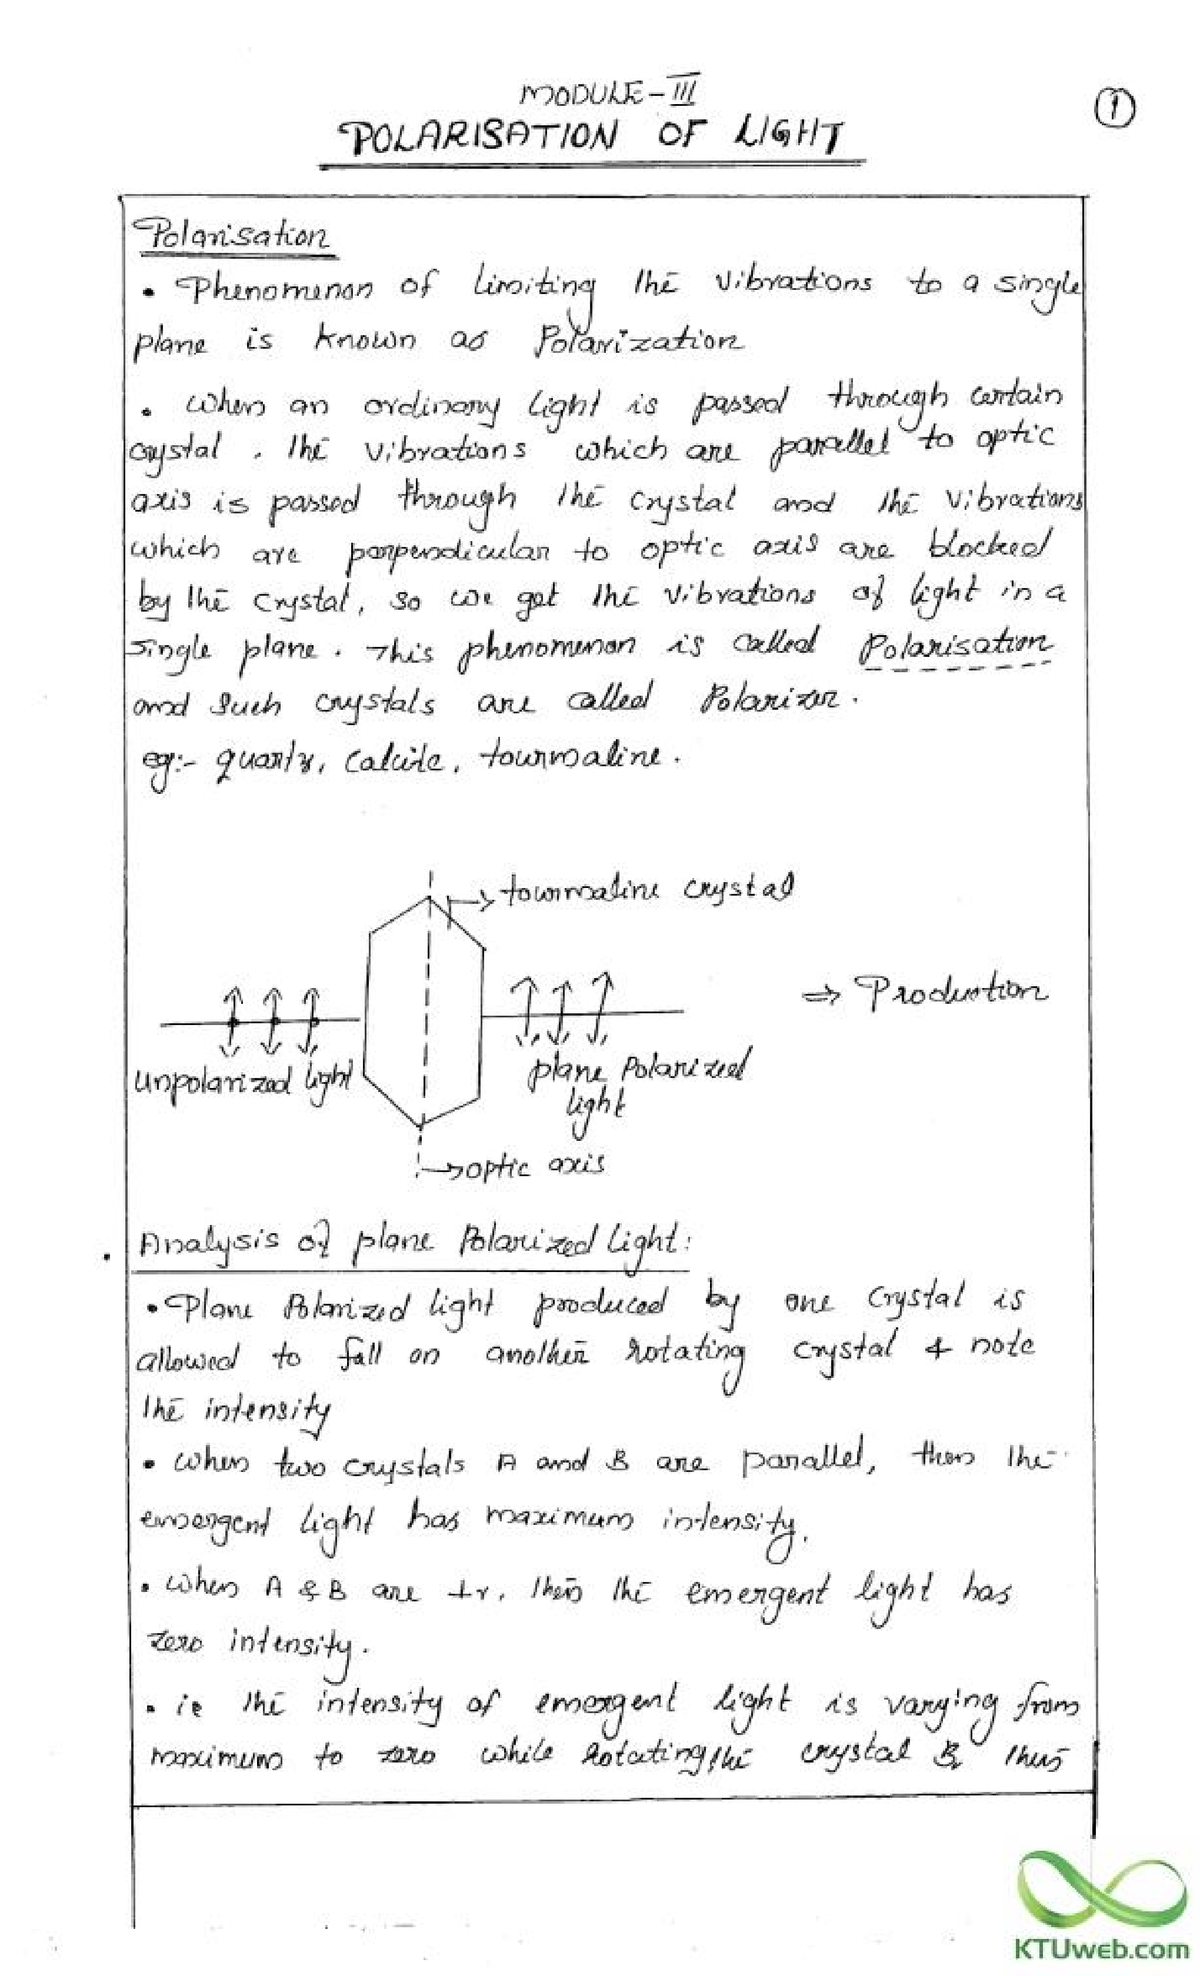 MODULE-III
①
POLARISATION OF LIGHT
Polarisation
• Phenomenon of limiting the vibrations to a single
plane is known as Polarization
• When an ordinary light is passed through certain
crystal. The vibrations which are parallel to optic
axis is passed through the crystal and the vibrations
which are perpendicular to optic axis are blocked
by the crystal, so we get the vibrations of light in a
single plane. This phenomenon is called Polarisation
and such crystals are called Polarizer.
eg:- quartz, calcite, tourmaline.
tourmaline crystal
⇒ Production
unpolarized light
plane Polarized
light
optic axis
• Analysis of plane Polarized Light:
• Plane Polarized light produced by one crystal is
allowed to fall on another rotating crystal & note
the intensity
• When two crystals A and B are parallel, then the
emergent light has maximum intensity.
• When A & B are ⊥r, then the emergent light has
zero intensity.
• ie the intensity of emergent light is varying from
maximum to zero while rotating the crystal B. Thus
KTUweb.com